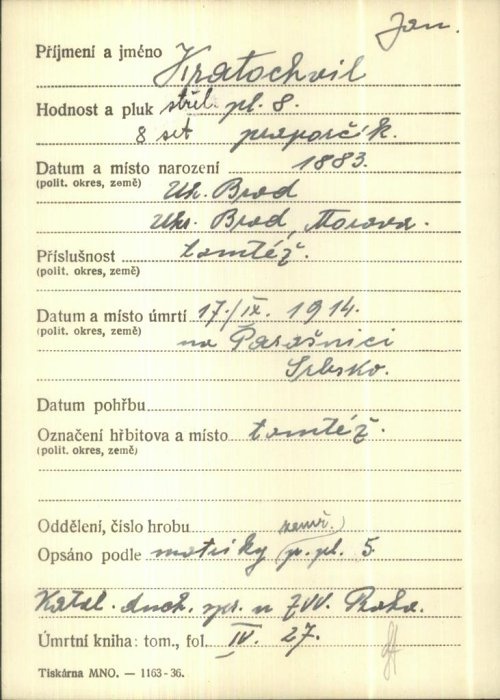 Jan.
Příjmení a jméno Kratochvil
Hodnost a pluk střel. pl. 8.
8 set praporčík.
Datum a místo narození 1883.
(polit. okres, země) Uh. Brod
Uh. Brod, Morava.
Příslušnost tamtéž.
(polit. okres, země)
Datum a místo úmrtí 17./IX. 1914.
(polit. okres, země) na Parašnici
Srbsko.
Datum pohřbu
Označení hřbitova a místo tamtéž.
(polit. okres, země)
Oddělení, číslo hrobu zemř.
Opsáno podle matriky p. pl. 5.
Katol. duch. spr. u ZVV. Praha.
Úmrtní kniha: tom., fol. IV. 27.
Tiskárna MNO. — 1163-36.